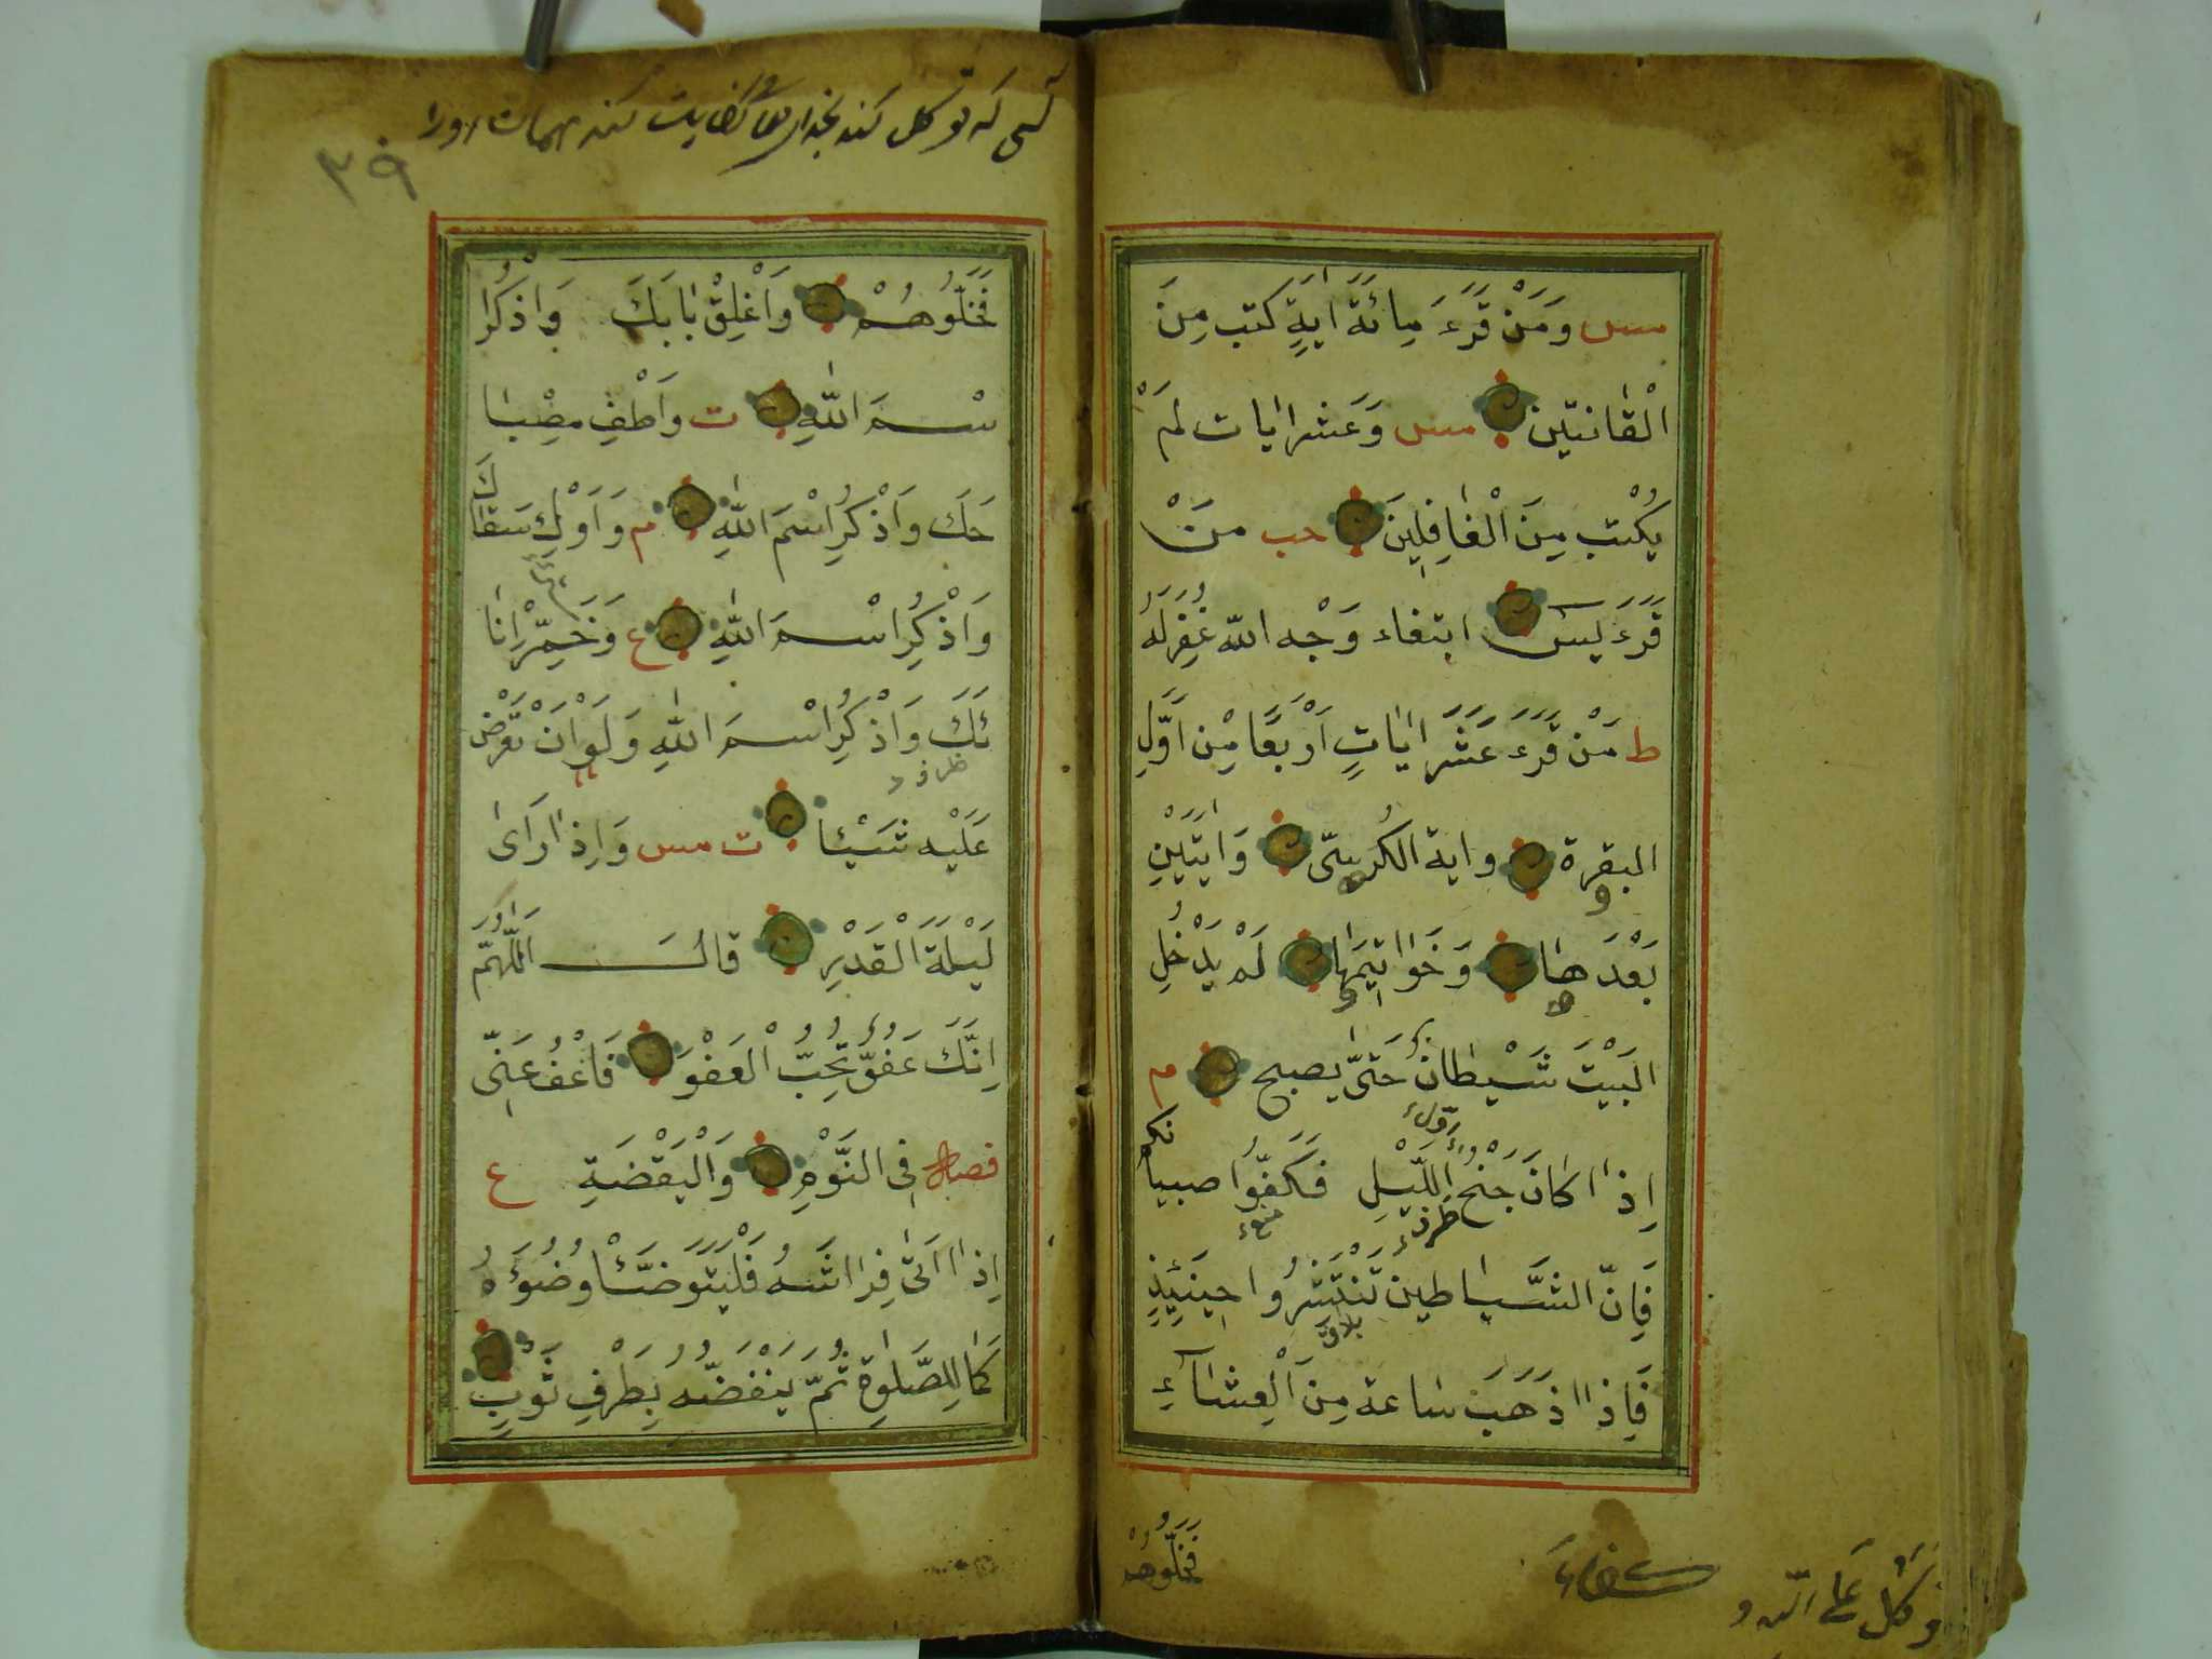 مس وَمَنْ قَرَءَ مِائَةَ اٰيَةٍ كتب مِنَ
الْقٰانتيّن مس وَعَشر ايٰات لَمْ
يُكْتب مِنَ الْغٰافِلِينَ حب منْ
قَرَءَ يٰسٓ ابتغاء وَجْه اللّه غُفِرَلَهُ
ط مَنْ قَرَءَ عَشَرَ ايٰاتٍ اَرْبَعًا مِنْ اَوَّلِ
البقرة واية الكُرسيّ وَايَتَيْنِ
بَعْدَهٰا وَخَوٰاتِيمَهٰا لَمْ يَدْخُلِ
البَيْتَ شَيْطٰان حَتّٰى يصبح م
اِذٰا كَانَ جَنْحُ اللَّيْلِ فَكَفُّوا صبيانكم
فَاِنّ الشَّيٰاطين تَنْتَشرُوا حِينَئِذٍ
فَاِذٰا ذَهَبَ سٰاعة مِنَ الْعِشٰاءِ
فَخَلُّوهُمْ
توكل على الله و
كسى كه توكل كند بخداى كفايت كند مهمات اورا
۳۹
فَخَلُّوهُمْ وَاَغْلِقْ بٰابَكَ وَاذكُرا
سْمَ اللّٰهِ ت واَطْفِ مِصْبٰا
حَكَ وَاذْكُرِ اسْمَ اللّٰهِ م وَاَوْكِ سَقٰاكَ
وَاذْكُرِ اسْمَ اللّٰهِ ع وَخَمِّرْ اِنٰا
ئَكَ وَاذْكُرِ اسْمَ اللّٰهِ وَلَوْ اَنْ تَعْرَض
عَلَيْه شَيْئاً ت مس وَاِذٰا رَاَىٰ
لَيْلَةَ الْقَدْرِ قالَ اَللّٰهُمَّ
اِنَّكَ عَفُوّ تُحِبُّ الْعَفْوَ فَاعْفُ عَنِّى
فصل فِى النَّوْمِ وَالْيَقْضَةِ ع
اِذٰا اَتٰى فِرٰاشَهُ فَلْيَتَوَضَّأْ وُضُوءَهُ
كَمٰا لِلصَّلٰوةِ ثُمّ يَنْفُضُهُ بِطَرْفِ ثَوْبِ